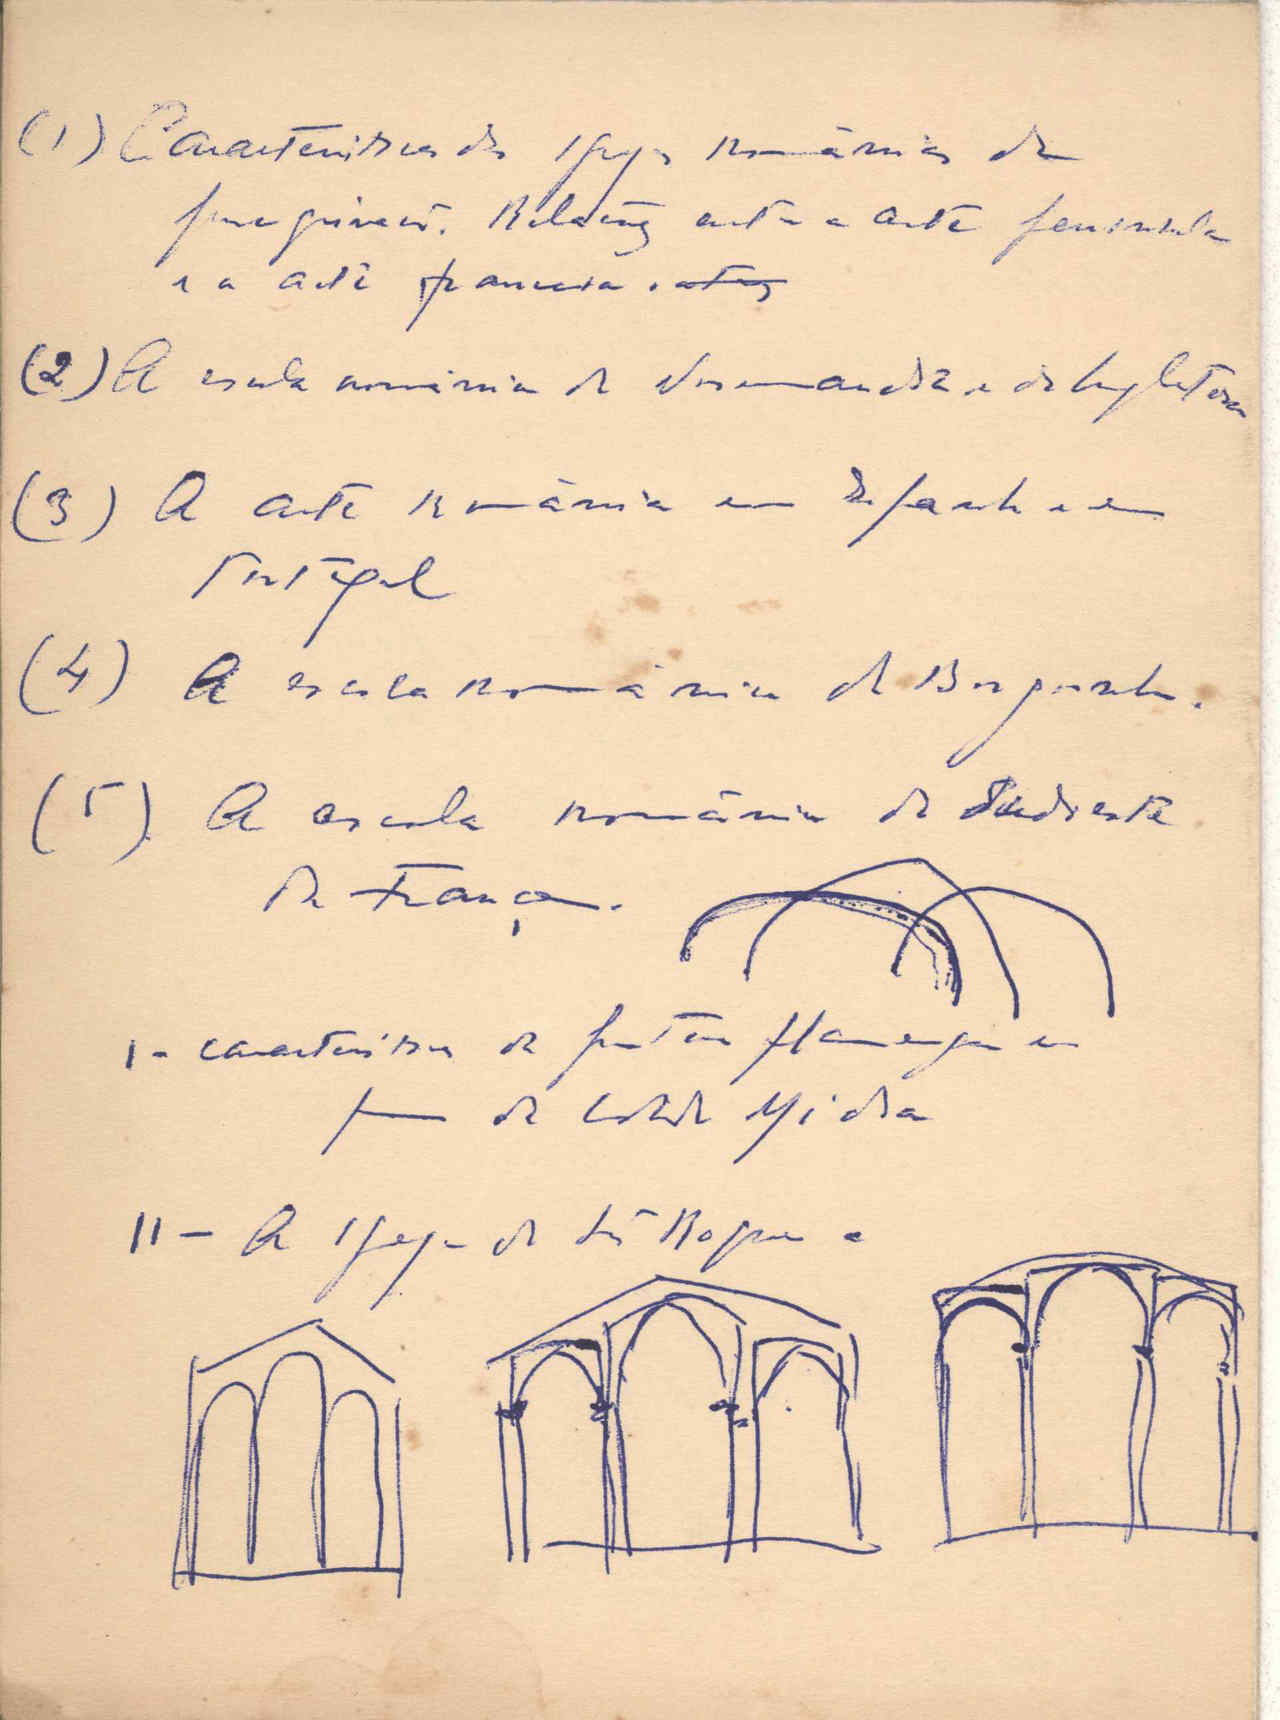 (1) Características das Igrejas românicas de
peregrinação. Relação entre a arte peninsular
e a arte francesa.
(2) A escola românica da Normandia e da Inglaterra
(3) A arte românica em Espanha e em
Portugal
(4) A escola românica da Borgonha.
(5) A escola românica do Sudoeste
da França.
I - características da pintura flamenga em
fim da Idade Média
II - A Igreja de São Roque e